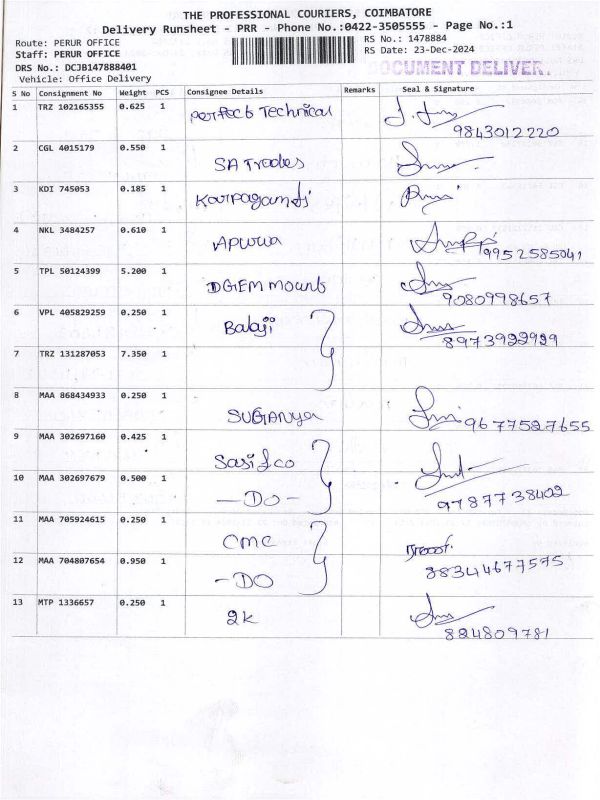 THE PROFESSIONAL COURIERS, COIMBATORE
Delivery Runsheet - PRR - Phone No.:0422-3505555 - Page No.:1
Route: PERUR OFFICE
Staff: PERUR OFFICE
DRS No.: DCJB147888401
Vehicle: Office Delivery
RS No.: 1478884
RS Date: 23-Dec-2024
DOCUMENT DELIVER.
S No Consignment No Weight PCS Consignee Details Remarks Seal & Signature
1 TRZ 102165355 0.625 1 Perfect Technical
9843012220
2 CGL 4015179 0.550 1 SA Trades
3 KDI 745053 0.185 1
4 NKL 3484257 0.610 1 Apurva 9952585041
5 TPL 50124399 5.200 1 DGEM mounts 9080998657
6 VPL 405829259 0.250 1 Balaji 8973922929
7 TRZ 131287053 7.350 1
8 MAA 868434933 0.250 1 SUGANYA 9677527655
9 MAA 302697160 0.425 1 Sasi &co
10 MAA 302697679 0.500 1 -DO- 9787738402
11 MAA 705924615 0.250 1 CMC
12 MAA 704807654 0.950 1 -DO 88344677575
13 MTP 1336657 0.250 1 2k 824809781